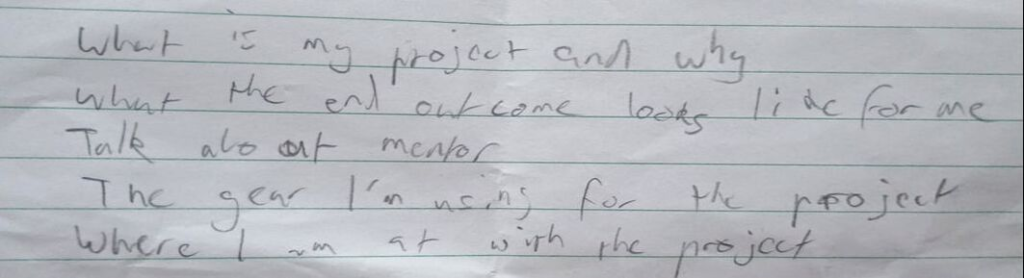 What is my project and why
What the end outcome looks like for me
Talk about mentor
The gear I'm using for the project
Where I am at with the project